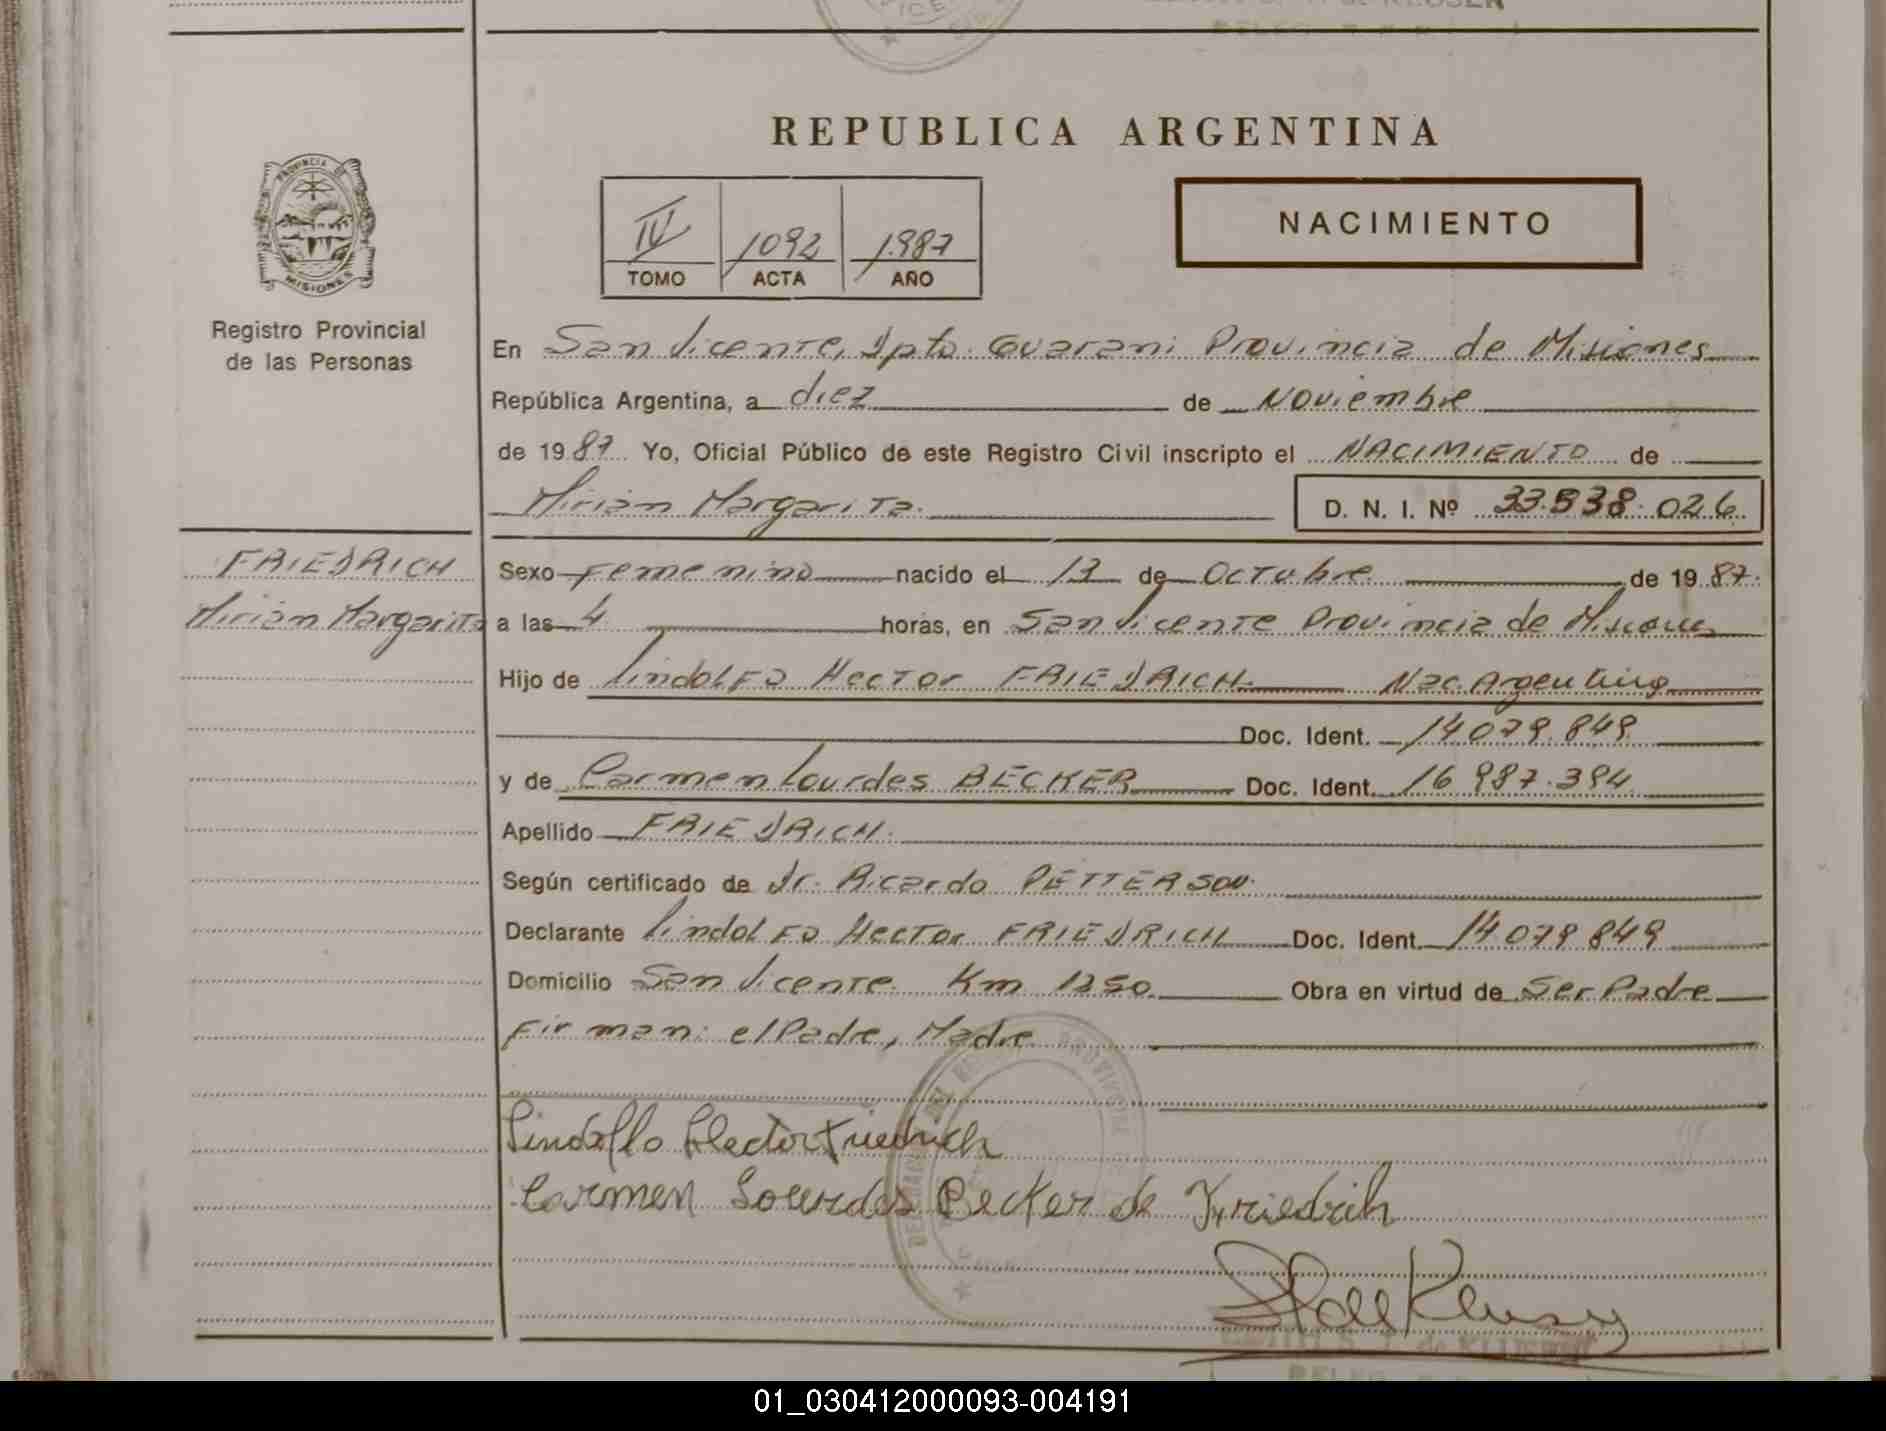 REPUBLICA ARGENTINA
PROVINCIA DE
MISIONES
Registro Provincial
de las Personas
IV 1092 1987
TOMO ACTA AÑO
NACIMIENTO
En San Vicente, Dpto. Guarani Provincia de Misiones
República Argentina, a diez de Noviembre
de 1987 Yo, Oficial Público de este Registro Civil inscripto el NACIMIENTO de
Mirian Margarita
D. N. I. Nº 33.538.026
FRIEDRICH
Mirian Margarita
Sexo Femenino nacido el 13 de Octubre de 1987.
a las 4 horas, en San Vicente Provincia de Misiones
Hijo de Lindolfo Hector FRIEDRICH Nac. Argentino
Doc. Ident. 14.079.849
y de Carmen Lourdes BECKER Doc. Ident. 16.987.394
Apellido FRIEDRICH.
Según certificado de Dr. Ricardo PETTERSON.
Declarante Lindolfo Hector FRIEDRICH Doc. Ident. 14.079.849
Domicilio San Vicente Km 1250 Obra en virtud de Ser Padre
Firman: el Padre, Madre
Lindolfo Hector Friedrich
Carmen Lourdes Becker de Friedrich
01_030412000093-004191